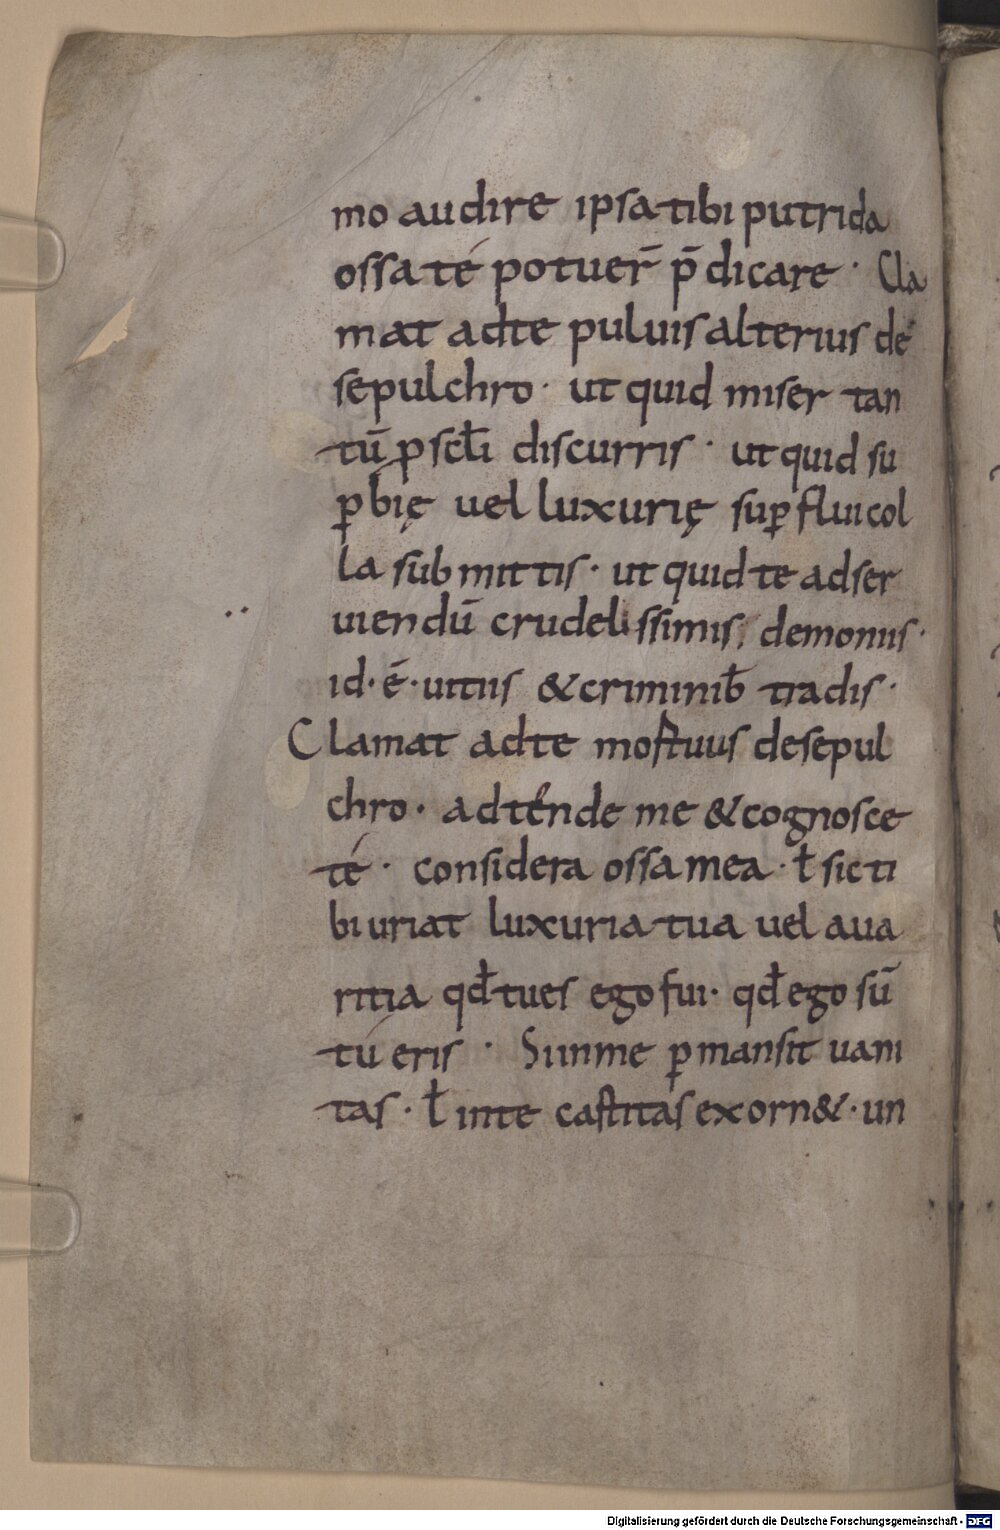 mo audire ipsa tibi putrida
ossa té potuer̄ p̄dicare · Cla
mat ad te puluis alterius de
sepulchro · ut quid miser tan
tū ꝑ scł̄i discurris · ut quid su
ꝑbię uel luxurię suꝑflui col
la submittis · ut quid te ad ser
uiendū crudelissimis demoniis ·
id · ē · uitiis & criminib̄ tradis ·
Clamat ad te mortuus de sepul
chro · adtende me & cognosce
té · considera ossa mea · ł sic ti
bi uriat luxuria tua uel aua
ritia qđ tu es ego fui · qđ ego sū
tú eris · Si in me ꝑmansit uani
tas · ł in te castitas exorn& · un
Digitalisierung gefördert durch die Deutsche Forschungsgemeinschaft - DFG